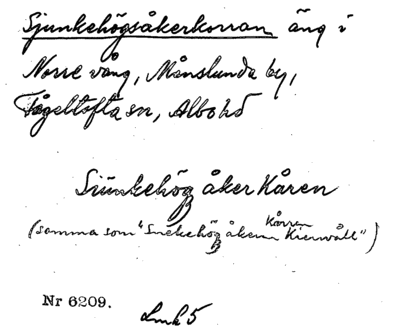 Sjunkehögsåkerkorran äng i
Norre vång, Månslunda by,
Fågeltofta sn, Albo hd
Siünkehög åker Kåren
(samma som "Snekehög åkern Kårren Kierwåll")
Nr 6209.
Lmk 5